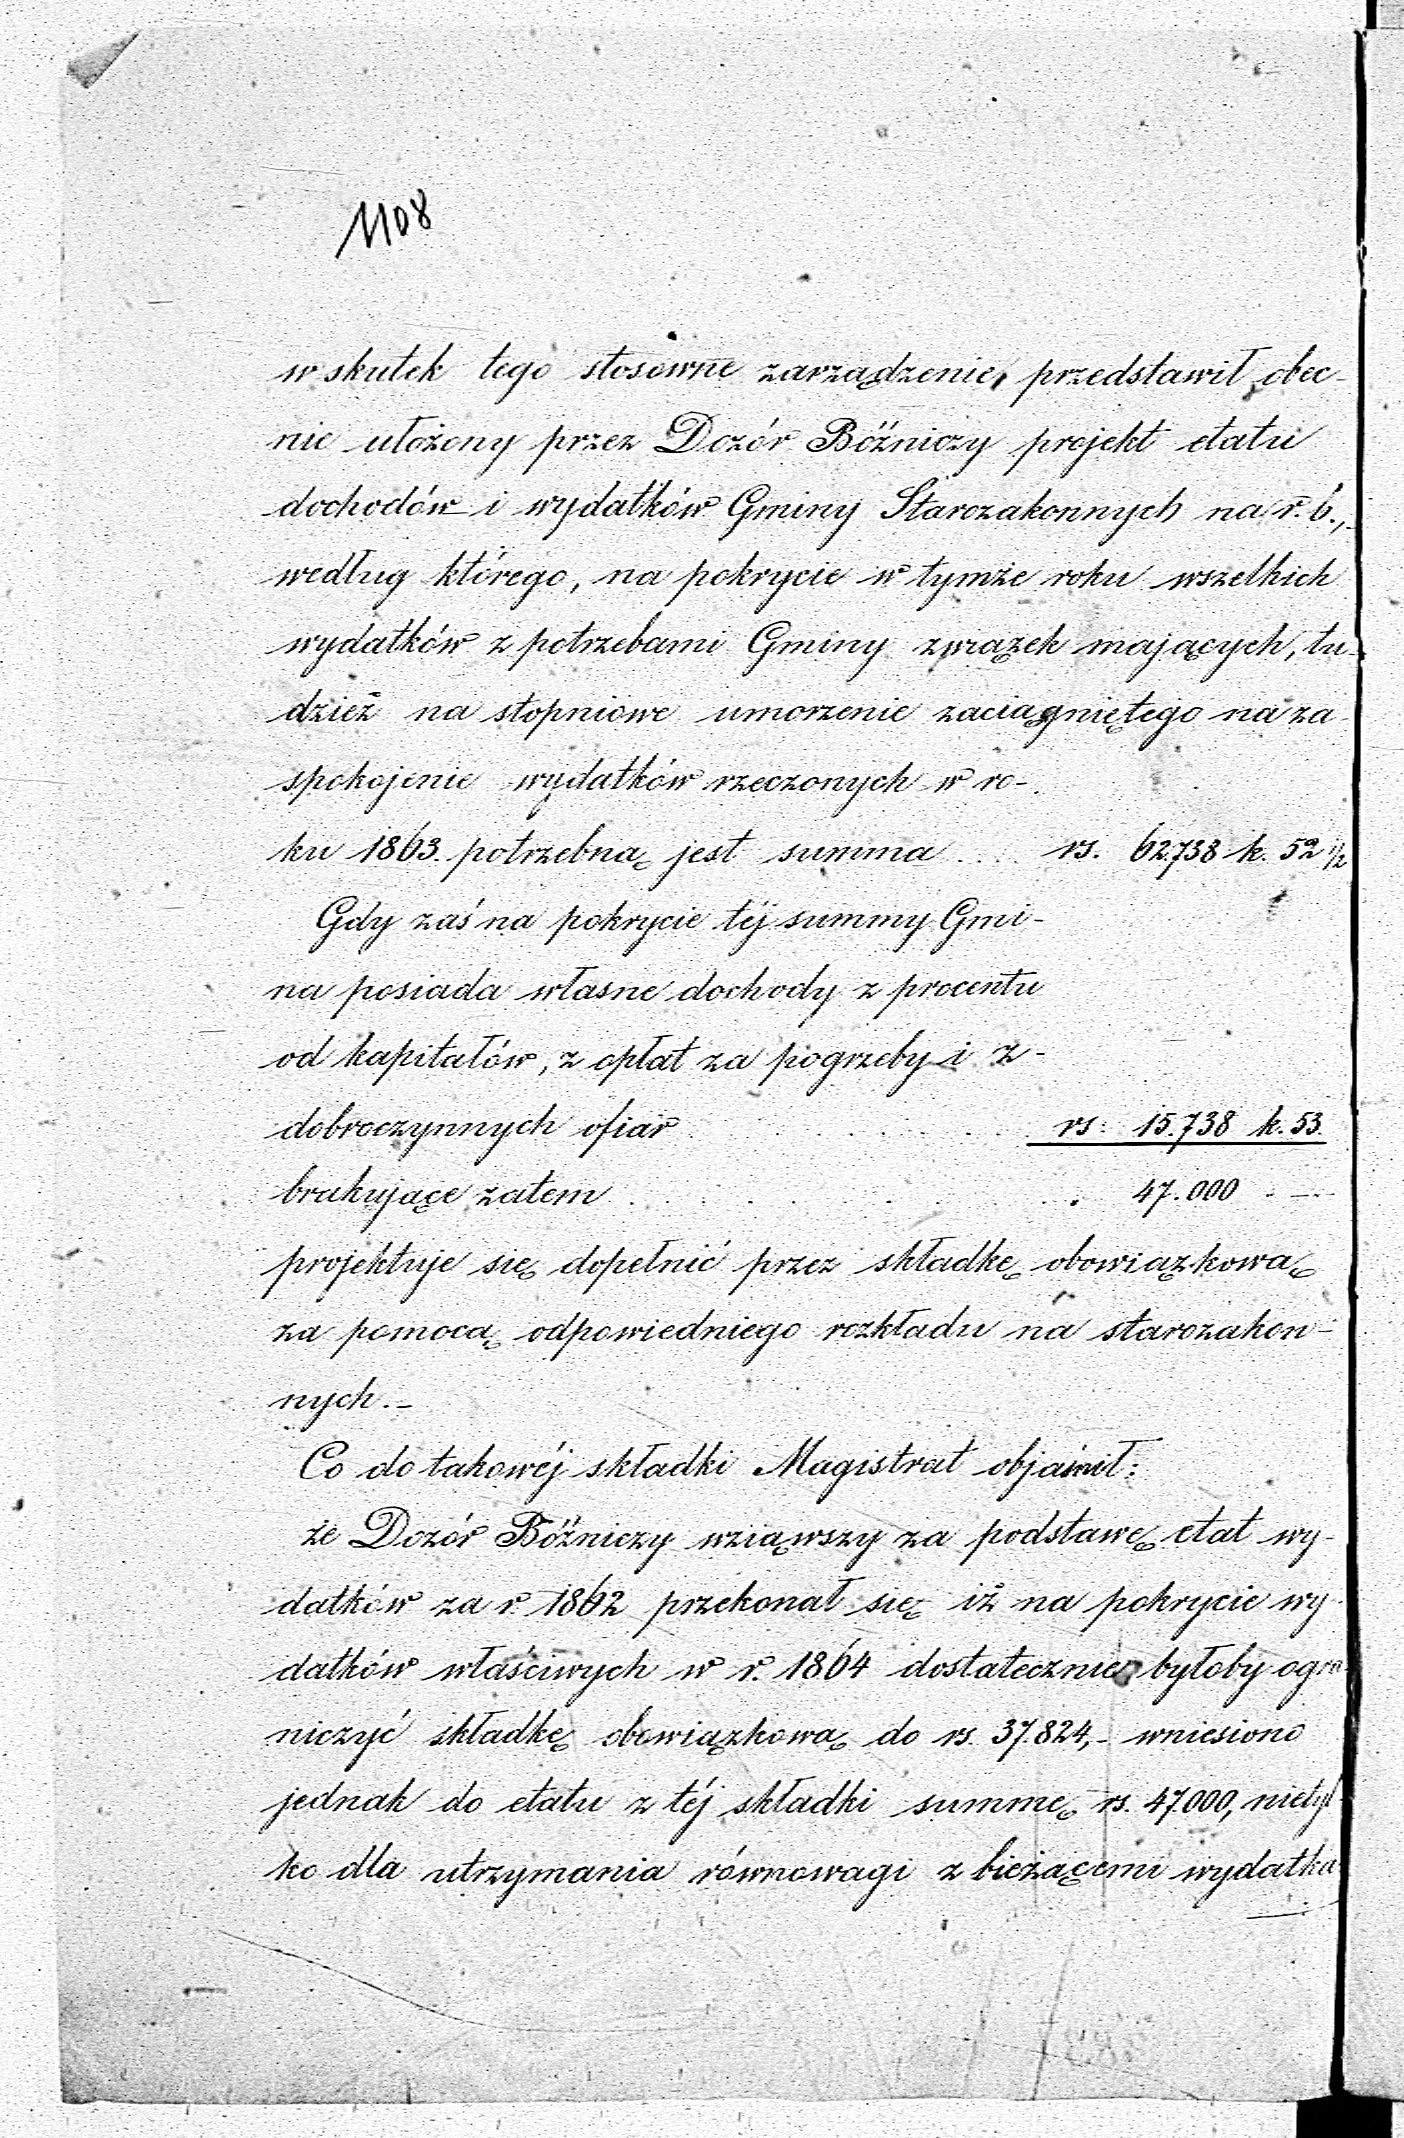 1108
w skutek tego stosowne zarządzenie, przedstawił obec-
nie ułożony przez Dozór Bóźniczy projekt etatu
dochodów i wydatków Gminy Starozakonnych na r. b.,
według którego, na pokrycie w tymże roku wszelkich
wydatków z potrzebami Gminy związek mających, tu-
dzież na stopniowe umorzenie zaciągniętego na za-
spokojenie wydatków rzeczonych w ro-
ku 1863 potrzebną jest summa .... rs. 62.738 k. 52 1/2
Gdy zaś na pokrycie téj summy Gmi-
na posiada własne dochody z procentu
od kapitałów, z opłat za pogrzeby i z-
dobroczynnych ofiar . . . . . . rs: 15.738 k. 53.
brakujące zatem . . . . . . . 47.000 . —
projektuje się dopełnić przez składkę obowiązkową
za pomocą odpowiedniego rozkładu na starozakon-
nych.-
Co do takowéj składki Magistrat objaśnił:
że Dozór Bóźniczy wziąwszy za podstawę etat wy-
datków za r. 1862 przekonał się iż na pokrycie wy-
datków właściwych w r. 1864 dostatecznie byłoby ogra-
niczyć składkę obowiązkową do rs. 37.824,- wniesiono
jednak do etatu z téj składki summę rs. 47.000, nietyl
ko dla utrzymania równowagi z bieżącemi wydatka